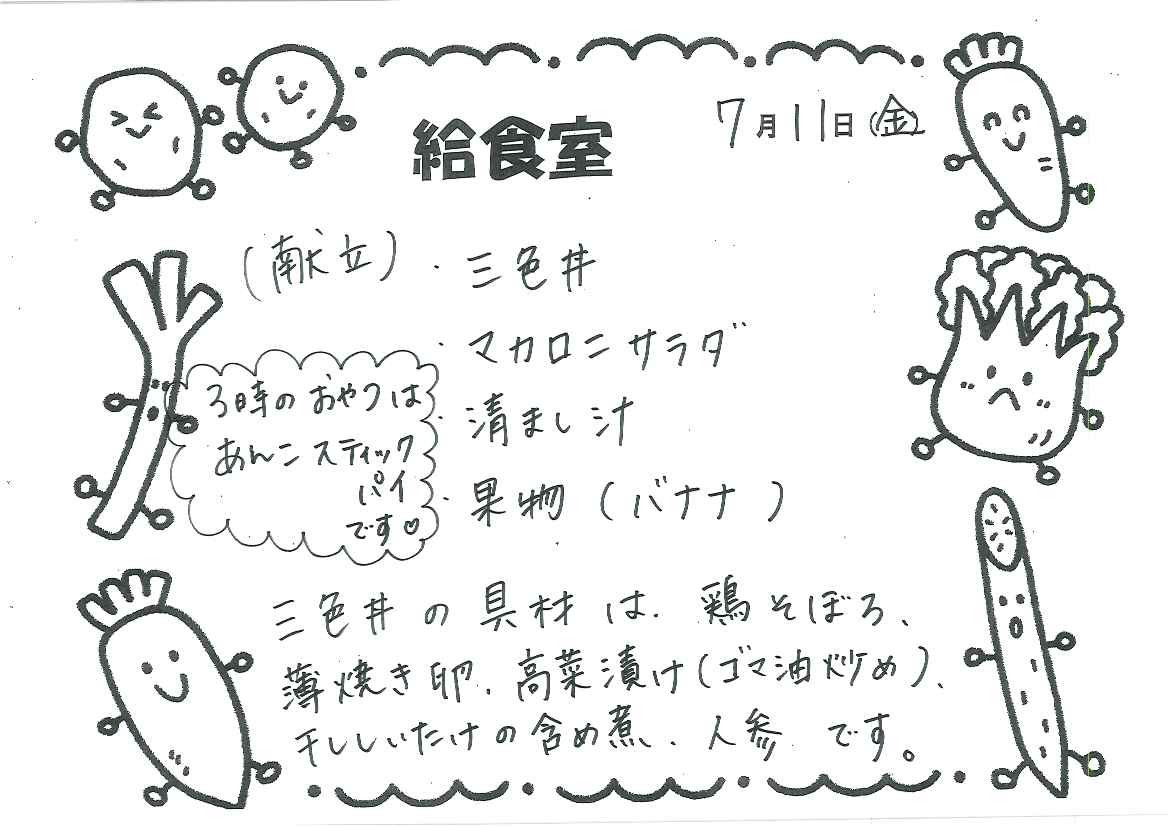 給食室
7月11日(金)
(献立)・三色丼
・マカロニサラダ
・清まし汁
・果物(バナナ)
3時のおやつは
あんこスティック
パイ
です♡
三色丼の具材は、鶏そぼろ、
薄焼き卵、高菜漬け(ゴマ油炒め)、
干ししいたけの含め煮、人参です。